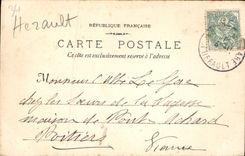 Herault
RÉPUBLIQUE FRANÇAISE
CARTE POSTALE
Ce côté est exclusivement réservé à l'adresse
HERAULT
Monsieur l'Abbé
chez les Sœurs de la Sagesse
maison de Pont Achard
Poitiers
Vienne